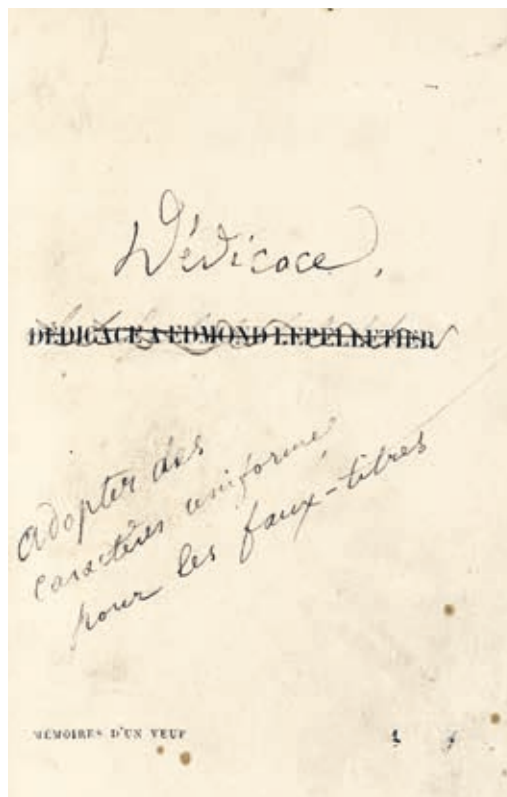 Dédicace.
DÉDICACE A EDMOND LEPELLETIER
adopter des
caractères uniformes
pour les faux-titres
MÉMOIRES D'UN VEUF
1